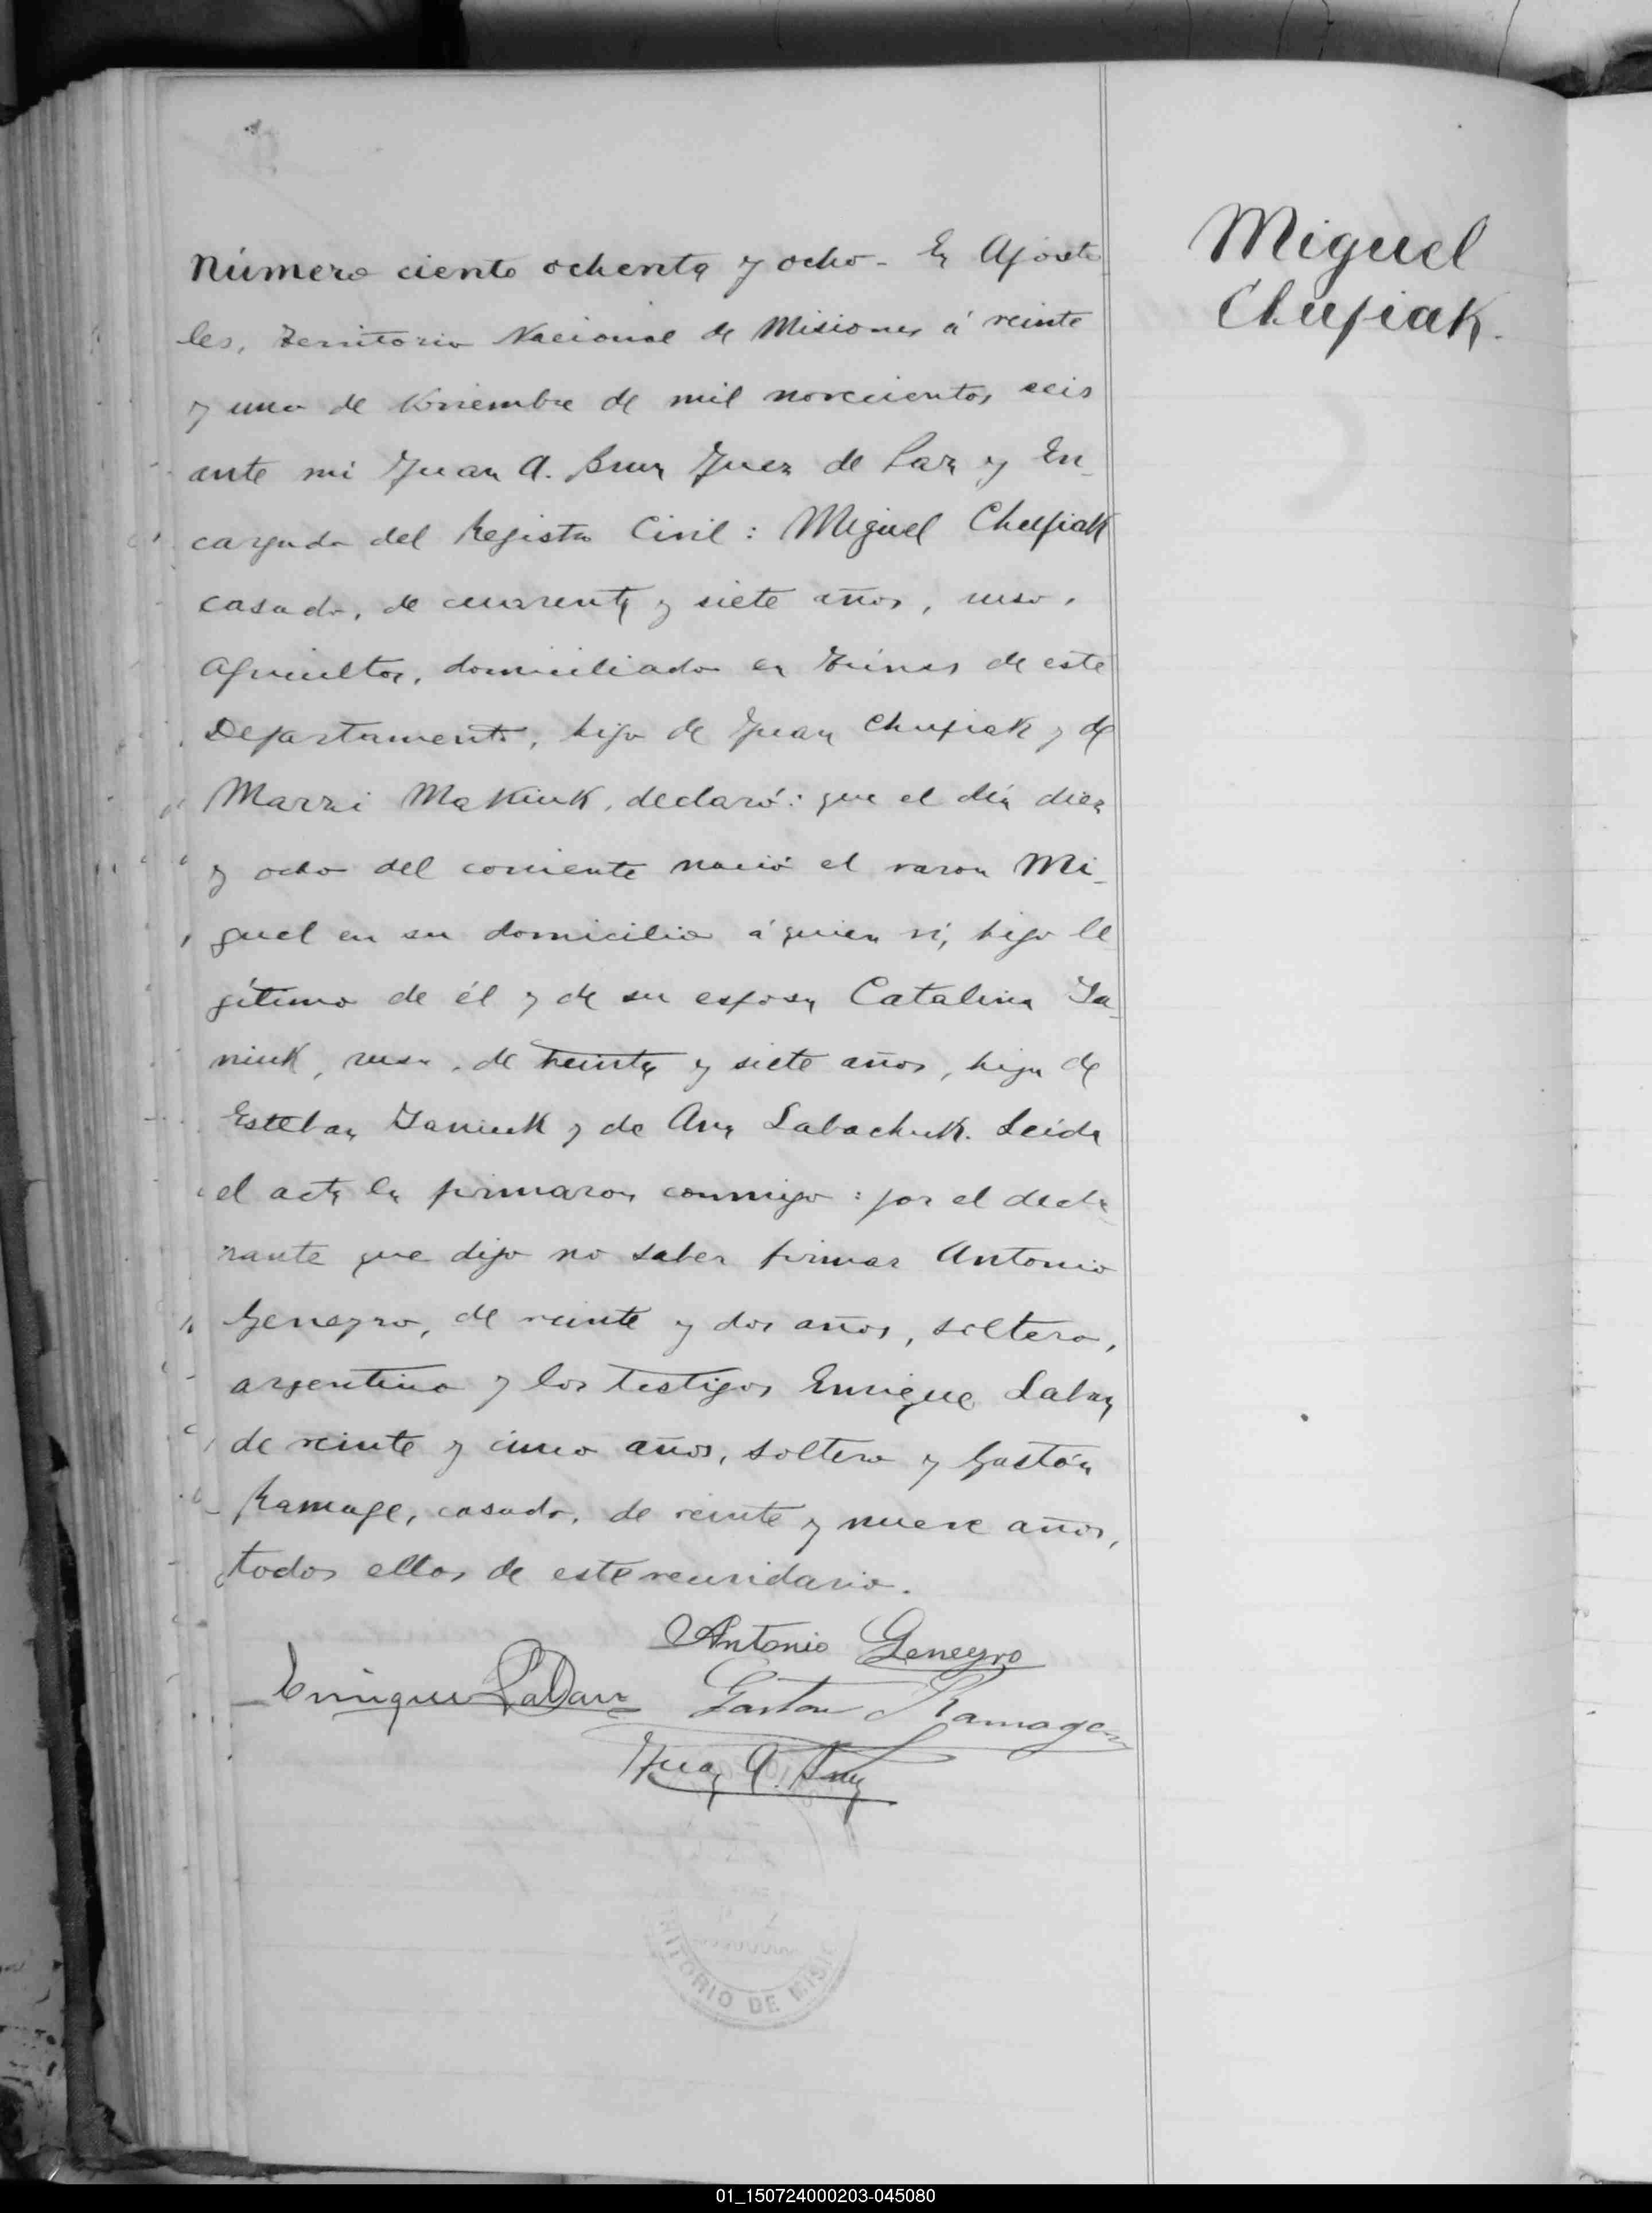 Miguel
Chupiak.
Número ciento ochenta y ocho - En Aposto
les, Territorio Nacional de Misiones á veinte
y uno de Noviembre de mil novecientos seis
ante mi Juan A. Juez de Paz y En-
cargado del Registro Civil: Miguel Chupiak
casado, de cuarenta y siete años, ruso,
agricultor, domiciliado en de este
Departamento, hijo de Juan Chupiak y de
Marri Makiuk, declaró: que el día diez
y ocho del corriente nació el varon Mi-
guel en su domicilio á quien ví, hijo le
gítimo de él y de su esposa Catalina Ya-
niuk, rusa, de treinta y siete años, hija de
Esteban Yaniuk y de Ana Labachuk. Leida
el acta la firmaron conmigo: por el decla-
rante que dijo no saber firmar Antonio
Geneyro, de veinte y dos años, soltero,
argentino y los testigos Enrique Laban
de veinte y cinco años, soltero y Gastón
Ramage, casado, de veinte y nueve años,
todos ellos de este vecindario.
Antonio Geneyro
Enrique Laban Gaston Ramage
Juan A.
RITORIO DE MISI
01_150724000203-045080